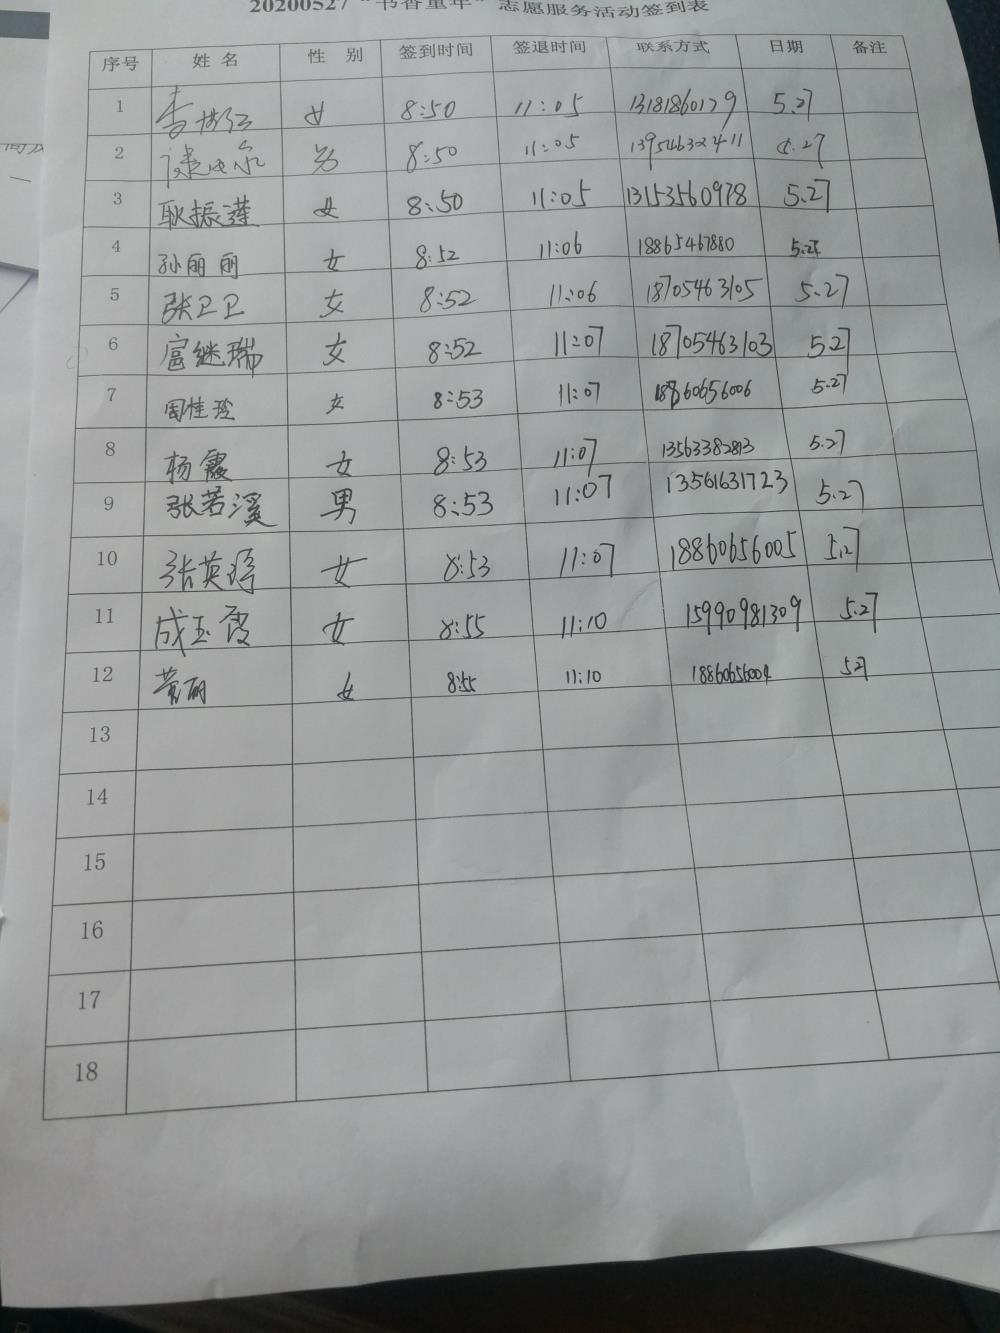 20200527“书香童年”志愿服务活动签到表
序号 姓名 性别 签到时间 签退时间 联系方式 日期 备注
1 李 女 8:50 11:05 13181860179 5.27
2 男 8:50 11:05 13954632411 5.27
3 耿振莲 女 8:50 11:05 13153560978 5.27
4 孙丽丽 女 8:52 11:06 18865467880 5.27
5 张卫卫 女 8:52 11:06 18705463105 5.27
6 扈继瑞 女 8:52 11:07 18705463103 5.27
7 周佳玲 女 8:53 11:07 18860656006 5.27
8 杨霞 女 8:53 11:07 13563382813 5.27
9 张若溪 男 8:53 11:07 13561631723 5.27
10 张英 女 8:53 11:07 18860656005 5.27
11 成玉霞 女 8:55 11:10 15990981309 5.27
12 丽 女 8:55 11:10 18860656004 5.27
13
14
15
16
17
18